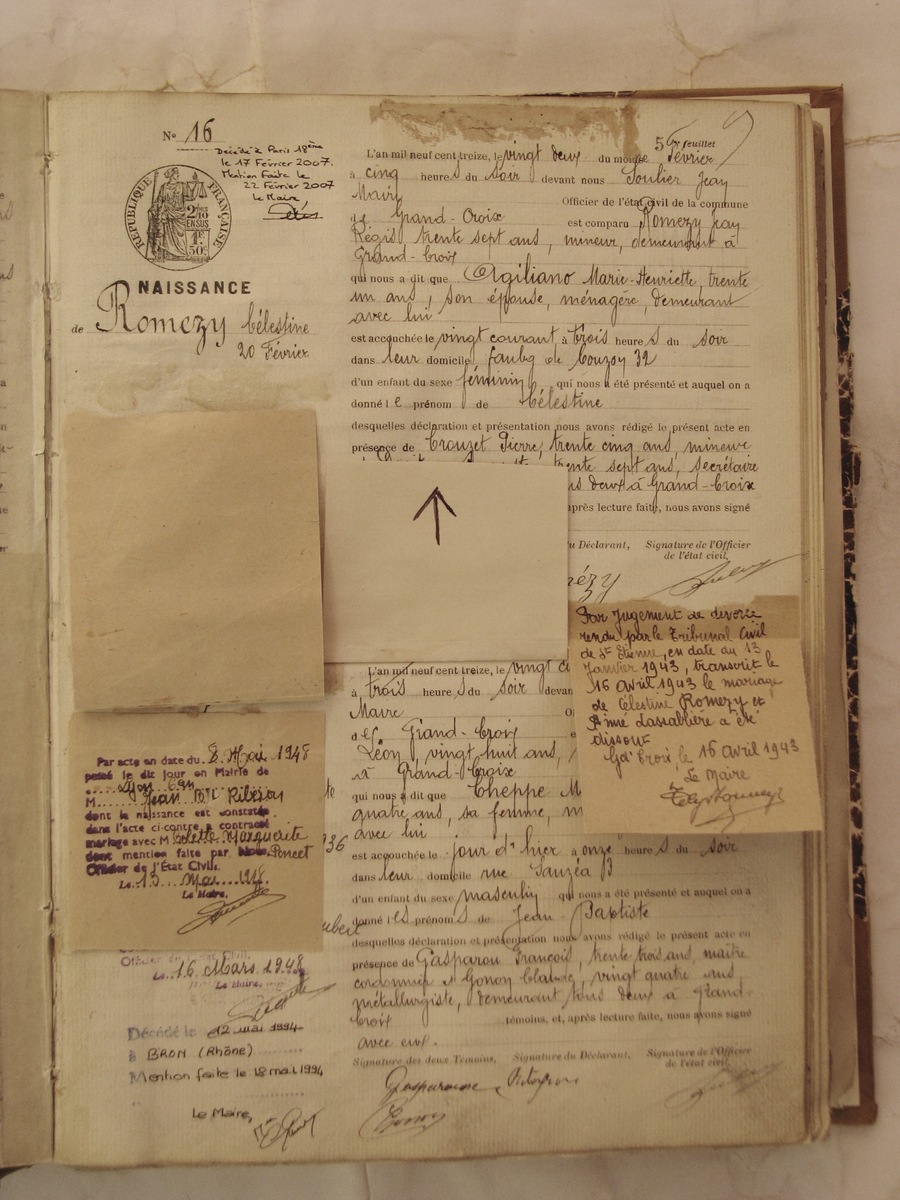 N° 16
Décédée à Paris 18ème
le 17 Février 2007.
Mention faite le
22 Février 2007
le Maire
RÉPUBLIQUE FRANÇAISE
2/10
EN SUS
1F
50c
NAISSANCE
de Romezy Célestine
20 Février
5 feuillet
L'an mil neuf cent treize, le vingt deux du mois de Février
à cinq heures du soir devant nous Soulier Jean
Maire Officier de l'état civil de la commune
de Grand-Croix est comparu Romezy Jean
Régis trente sept ans, mineur, demeurant à
Grand-Croix
qui nous a dit que Agiliano Marie-Henriette, trente
un ans, son épouse, ménagère, demeurant
avec lui
est accouchée le vingt courant, à trois heures du soir
dans leur domicile, faubg de Couzon 32
d'un enfant du sexe féminin, qui nous a été présenté et auquel on a
donné le prénom de Célestine
desquelles déclaration et présentation nous avons rédigé le présent acte en
présence de Crouzet Pierre, trente cinq ans, mineur
trente sept ans, secrétaire
deux à Grand-Croix
après lecture faite, nous avons signé
du Déclarant, Signature de l'Officier
de l'état civil,
Par jugement de divorce
rendu par le Tribunal Civil
de St Etienne, en date du 13
Janvier 1943, transcrit le
16 Avril 1943 le mariage
de Célestine Romezy et
dissout
Gd Croix le 16 avril 1943
Le Maire
L'an mil neuf cent treize, le vingt
à trois heures du soir devan
Maire
de Grand-Croix
Léon, vingt huit ans,
à Grand-Croix
qui nous a dit que Cheppe M
quatre ans, sa femme, m
avec lui
est accouchée le jour d'hier à onze heures du soir
dans leur domicile rue
d'un enfant du sexe masculin qui nous a été présenté et auquel on a
donné les prénoms de Jean Baptiste
desquelles déclaration et présentation nous avons rédigé le présent acte en
présence de Gasparou François, trente trois ans, maître
cordonnier et Gonon Claude, vingt quatre ans,
métallurgiste, demeurant tous deux à Grand-
Croix témoins, et, après lecture faite, nous avons signé
avec eux.
Signature des deux Témoins, Signature du Déclarant, Signature de l'Officier
de l'état civil,
Par acte en date du 8 Mai 1948
passé le dit jour en Mairie de
Lyon
M. Jean
dont la naissance est constatée
dans l'acte ci-contre a contracté
mariage avec M Colette Marguerite
dont mention faite par Nous, Poncet
Officier de l'État Civil.
Le 13 Mai 1948
Le Maire,
16 Mars 1948
Le Maire,
Décédé le 12 mai 1994
à BRON (Rhône)
Mention faite le 18 mai 1994
Le Maire,